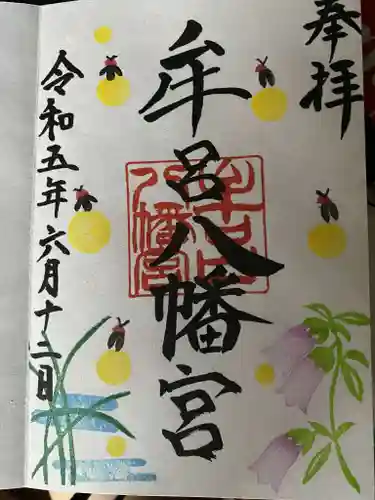 奉拝
牟呂八幡宮
牟呂八幡宮
令和五年六月十二日